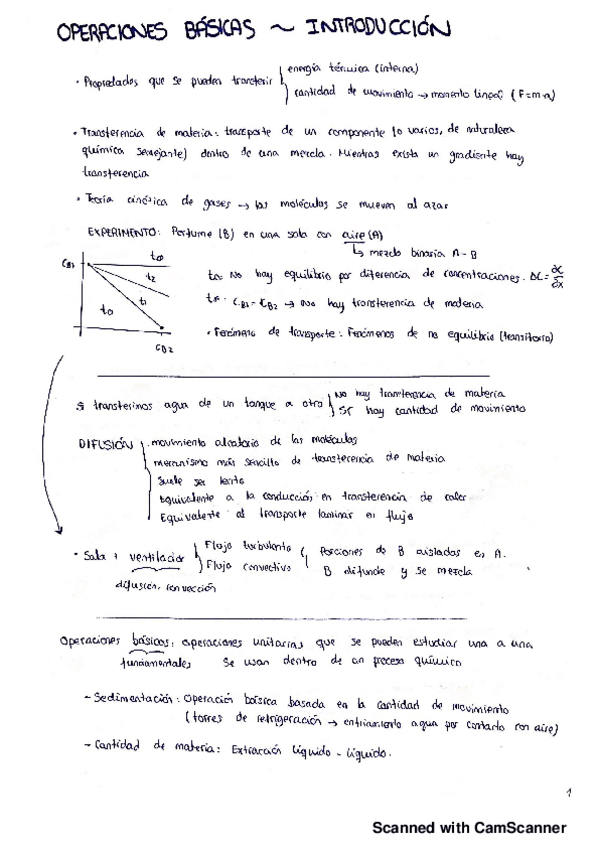 OPERACIONES BÁSICAS ~ INTRODUCCIÓN
· Propiedades que se pueden transferir { energía térmica (interna)
cantidad de movimiento → momento lineal (F=m·a)
· Transferencia de materia: transporte de un componente (o varios, de naturaleza
química semejante) dentro de una mezcla. Mientras exista un gradiente hay
transferencia
· Teoría cinética de gases → las moléculas se mueven al azar
EXPERIMENTO: Perfume (B) en una sala con aire (A)
↳ mezcla binaria A-B
CB1 t∞ t2 t1 t0 CB2
to: No hay equilibrio por diferencia de concentraciones. ΔC = ∂C/∂x
t∞: CB1 = CB2 → No hay transferencia de materia
· Fenómeno de transporte: Fenómenos de no equilibrio (transitorio)
Si transferimos agua de un tanque a otro { No hay transferencia de materia
SÍ hay cantidad de movimiento
DIFUSIÓN { movimiento aleatorio de las moléculas
mecanismo más sencillo de transferencia de materia
Suele ser lento
Equivalente a la conducción en transferencia de calor
Equivalente al transporte laminar en flujo
· Sala + ventilador } Flujo turbulento { Porciones de B aisladas en A.
Flujo convectivo B difunde y se mezcla
difusión, convección
Operaciones básicas: operaciones unitarias que se pueden estudiar una a una
fundamentales Se usan dentro de un proceso químico
- Sedimentación: Operación básica basada en la cantidad de movimiento
(torres de refrigeración → enfriamiento agua por contacto con aire)
- Cantidad de materia: Extracción líquido - líquido.
1
Scanned with CamScanner